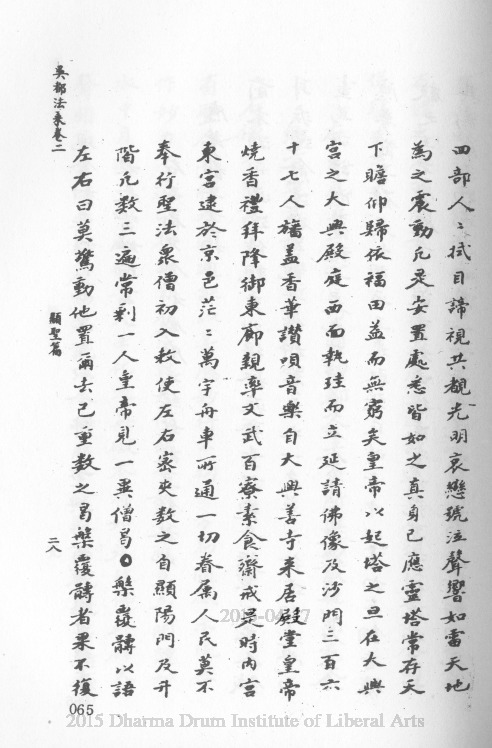 四部人〻拭目諦視共覩光明哀戀號泣聲響如雷天地
為之震動凡是安置處悉皆如之真身已應靈塔常存天
下瞻仰歸依福田益而無窮矣皇帝以起塔之旦在大興
宮之大興殿庭西面執珪而立延請佛像及沙門三百六
十七人旛蓋香華讚唄音樂自大興善寺來居殿堂皇帝
燒香禮拜降御東廊親率文武百寮素食齋戒是時內宮
東宮逮於京邑茫〻萬宇舟車所通一切眷屬人民莫不
奉行聖法衆僧初入敕使左右密夾数之自顯陽門及升
階凡数三遍常剩一人皇帝見一異僧曷槃覆髆以語
左右曰莫驚動他置爾去已重数之曷槃覆髆者果不復
吳都法乘卷二
顯聖篇
二八
065
2015 Dharma Drum Institute of Liberal Arts